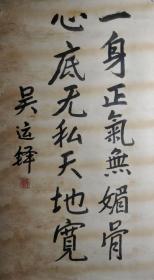 一身正氣無媚骨
心底无私天地寬
吴运铎